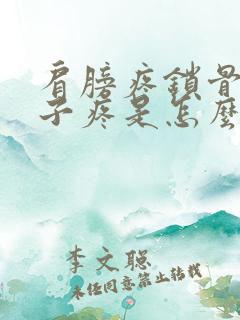 肩膀疼鎖骨
子疼是怎麼
李文聪
未经同意禁止转载